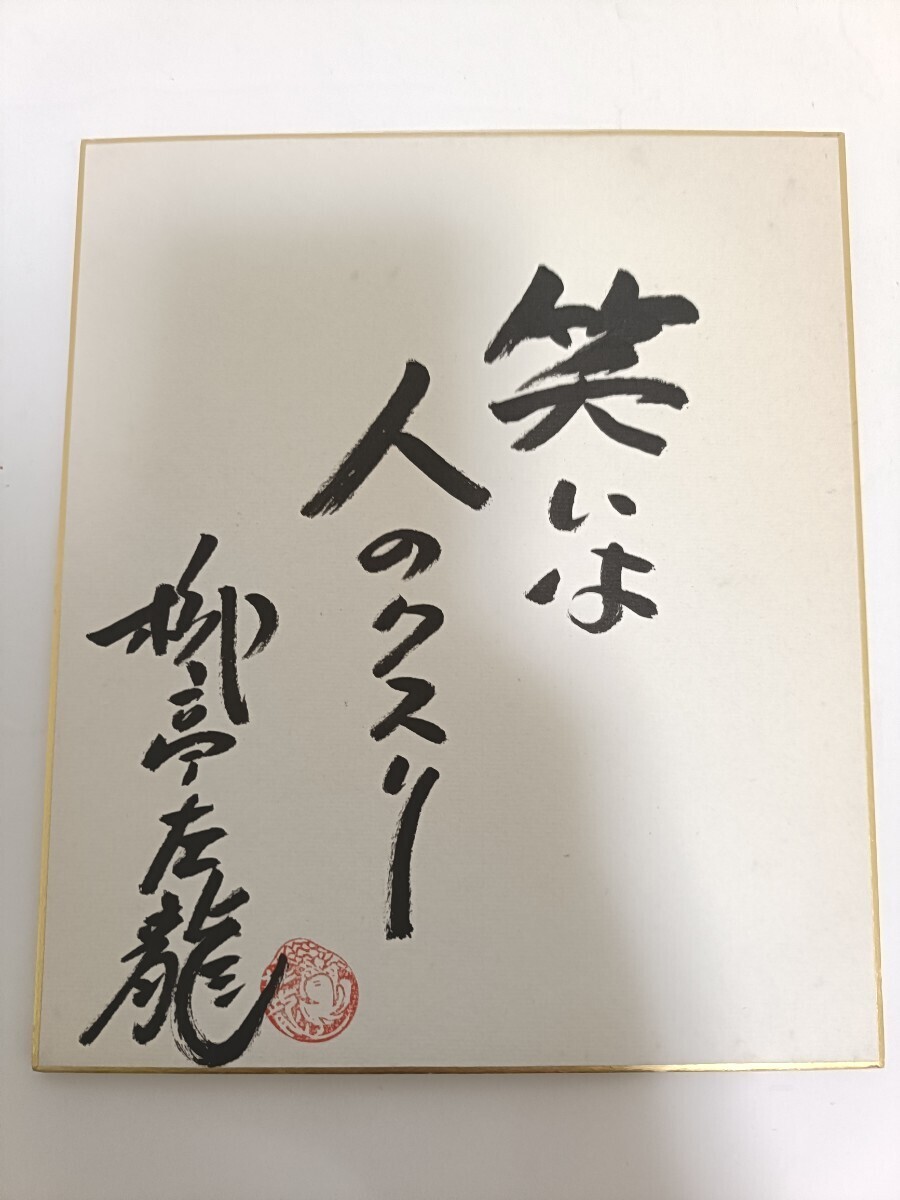 笑いは
人のクスリ
柳亭左龍